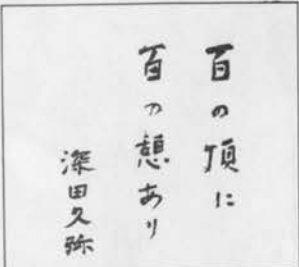 百の頂に
百の憩あり
深田久弥